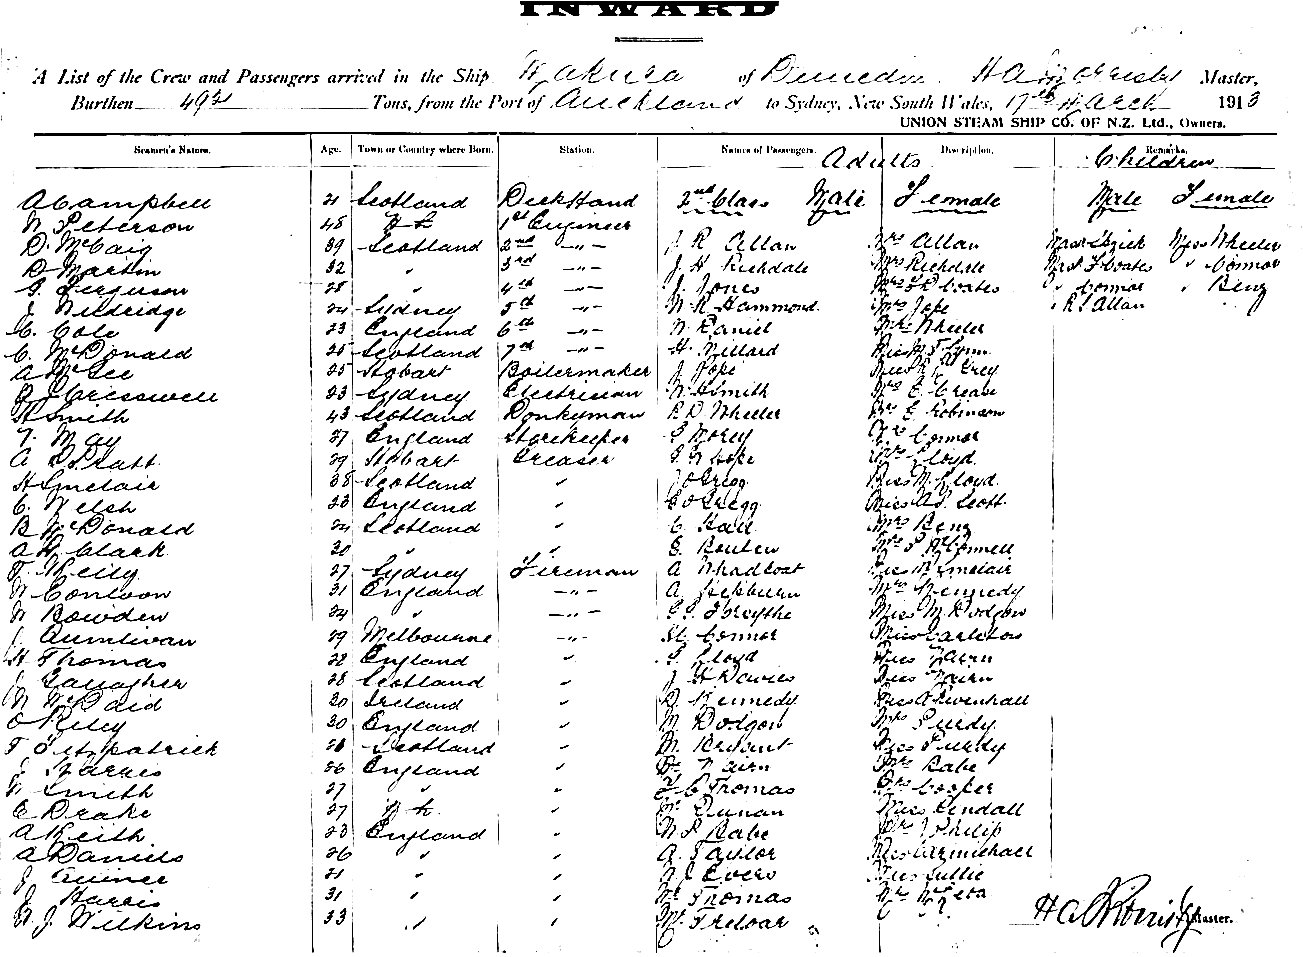 INWARD
A List of the Crew and Passengers arrived in the Ship Wakura of Dunedin H A Morrisby Master,
Burthen 493 Tons, from the Port of Auckland to Sydney, New South Wales, 17th March 1913
UNION STEAM SHIP CO. OF N.Z. Ltd., Owners.
Seamen's Names. Age. Town or Country where Born. Station. Names of Passengers. Description. Remarks.
Adults Children
A Campbell 21 Scotland Deck Hand 2nd Class Male Female Male Female
W Peterson 48 N Z 1st Engineer
D. McCaig 39 Scotland 2nd -"- J R Allan Mrs Allan Miss Wheeler
D Martin 32 " 3rd -"- J. H Richdale Mrs Richdale Mast F Coates " Connor
G Ferguson 28 " 4th -"- J. Jones Mrs F R Coates " Connor " Benz
J Neldridge 24 Sydney 5th -"- W R Hammond Mrs Jope " R S Allan
C. Cole 23 England 6th -"- W Daniel Mrs Wheeler
C. McDonald 25 Scotland 7th -"- H. Millard Miss Flynn
A McGee 25 Hobart Boilermaker J Jope Miss Grey
J Cresswell 23 Sydney Electrician W H Smith Mrs E Crease
H Smith 43 Scotland Donkeyman R D Wheeler E Robinson
T. May 27 England Storekeeper E Morey Mrs Connor
A Pratt 29 Hobart Greaser Mrs Lloyd
H Sinclair 38 Scotland " J O Gregg Miss M. Lloyd
C. Welsh 23 England " C O Gregg Miss A. Scott
B McDonald 24 Scotland C Hall Mrs Benz
A H Clark 30 " " E Bouten Mrs McConnell
T. Reilly 27 Sydney Fireman A Whadcoat Miss M Sinclair
W Conlvon 31 England -"- A Hepburn Mrs Kennedy
W Bowden 24 " -"- Forsythe Miss M. Dodgon
J. 29 Melbourne -"- Connor Miss Carleton
H Thomas 22 England " Lloyd Miss Nairn
J Gallagher 28 Scotland " J H Davies Miss Nairn
W McDaid 20 Ireland " D. Kennedy Miss
O Riley 30 England " M Dodgon Mrs Purdy
T Fitzpatrick 28 Scotland " M Miss Purdy
J Harris 26 England " Dr Nairn Mrs Rabe
W Smith 27 " " C Thomas Mrs Cooper
E Drake 27 N Z " Miss Kendall
A Keith 23 England " W S Rabe Mrs J Philip
A Daniels 26 " " A. Taylor Miss Carmichael
J 21 " " W J Evers Miss Lillie
J Harris 31 " " Mr Thomas
W J Wilkins 33 " " Mr Treloar
H A Morrisby Master.